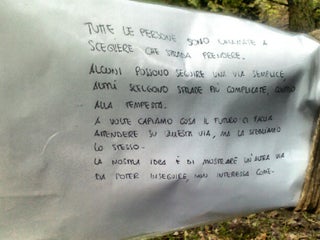 TUTTE LE PERSONE SONO CHIAMATE A
SCEGLIERE CHE STRADA PRENDERE.
ALCUNI POSSONO SEGUIRE UNA VIA SEMPLICE,
ALTRI SCELGONO STRADE PIÙ COMPLICATE,
ALLA TEMPESTA.
A VOLTE CAPIAMO COSA IL FUTURO CI FACCIA
ATTENDERE SU QUESTA VIA, MA LA SCEGLIAMO
LO STESSO.
LA NOSTRA IDEA È DI MOSTRARE UN'ALTRA VIA
DA POTER INSEGUIRE, NON INTERESSA COME.